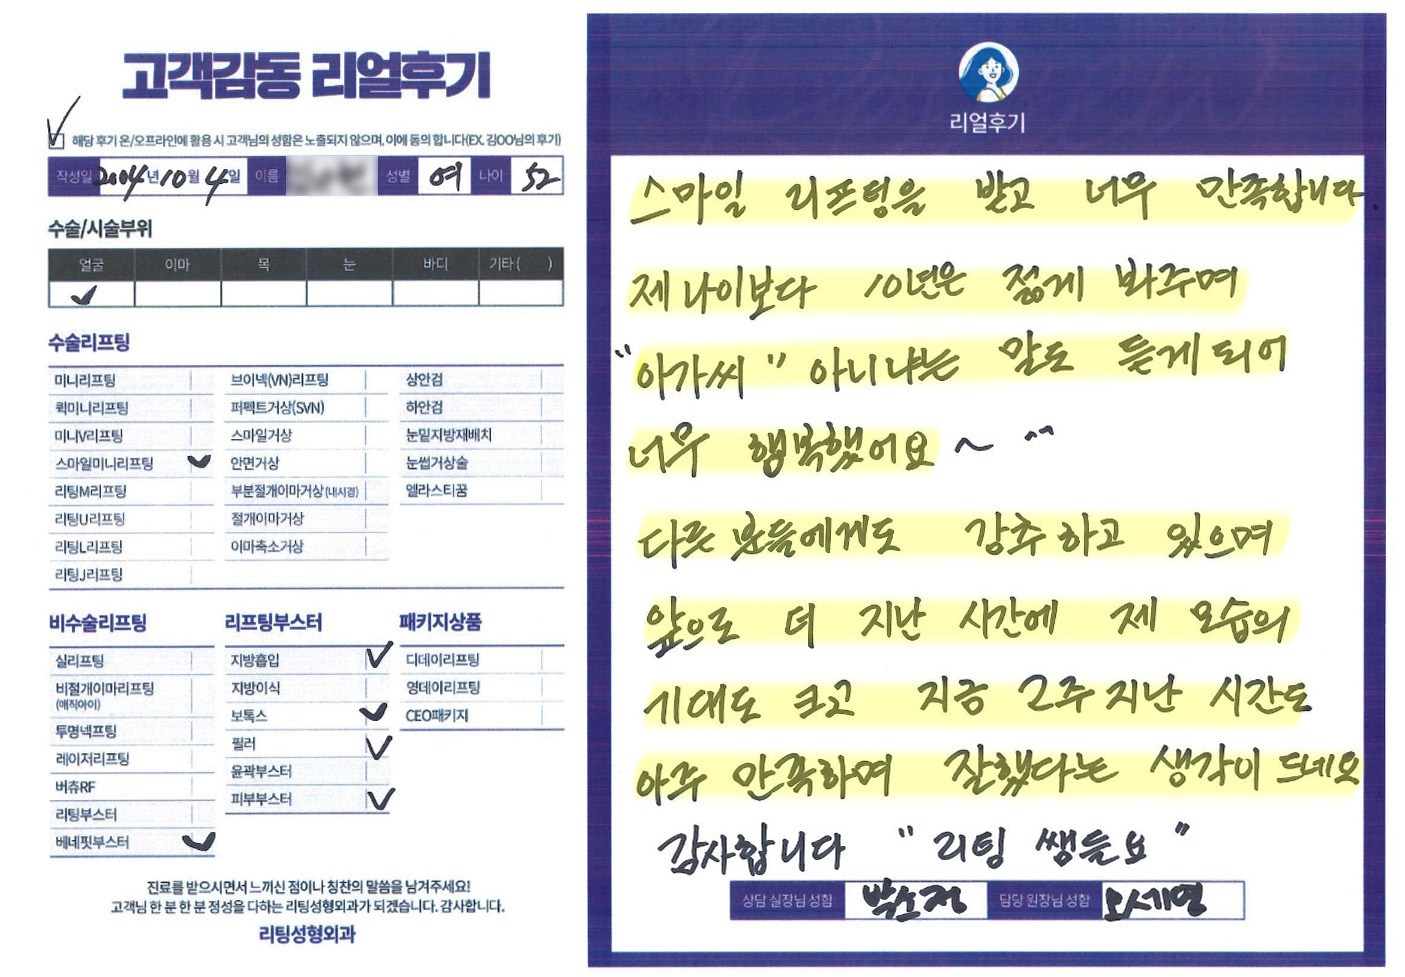 고객감동 리얼후기
해당 후기 온/오프라인에 활용 시 고객님의 성함은 노출되지 않으며, 이에 동의 합니다(EX. 김OO님의 후기)
작성일 2004년 10월 4일 이름 성별 여 나이 52
수술/시술부위
얼굴 이마 목 눈 바디 기타 ( )
수술리프팅
미니리프팅 브이넥(VN)리프팅 상안검
퀵미니리프팅 퍼펙트거상(SVN) 하안검
미니V리프팅 스마일거상 눈밑지방재배치
스마일미니리프팅 안면거상 눈썹거상술
리팅M리프팅 부분절개이마거상(내시경) 엘라스티꿈
리팅U리프팅 절개이마거상
리팅L리프팅 이마축소거상
리팅J리프팅
비수술리프팅 리프팅부스터 패키지상품
실리프팅 지방흡입 디데이리프팅
비절개이마리프팅 지방이식 영데이리프팅
(매직아이)
보톡스 CEO패키지
투명넥프팅 필러
레이저리프팅 윤곽부스터
버츄RF 피부부스터
리팅부스터
베네핏부스터
진료를 받으시면서 느끼신 점이나 칭찬의 말씀을 남겨주세요!
고객님 한 분 한 분 정성을 다하는 리팅성형외과가 되겠습니다. 감사합니다.
리팅성형외과
리얼후기
스마일 리프팅을 받고 너무 만족합니다.
제 나이보다 10년은 젊게 봐주며
"아가씨" 아니냐는 말도 듣게 되어
너무 행복했어요~ ^^
다른 분들에게도 강추하고 있으며
앞으로 더 지난 시간에 제 모습의
기대도 크고 지금 2주 지난 시간도
아주 만족하며 잘했다는 생각이 드네요
감사합니다 "리팅 쌤들요"
상담 실장님 성함 박소정 담당 원장님 성함 오세영